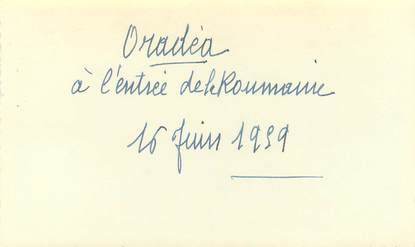 Oradéa
à l'entrée de la Roumanie
16 Juin 1939